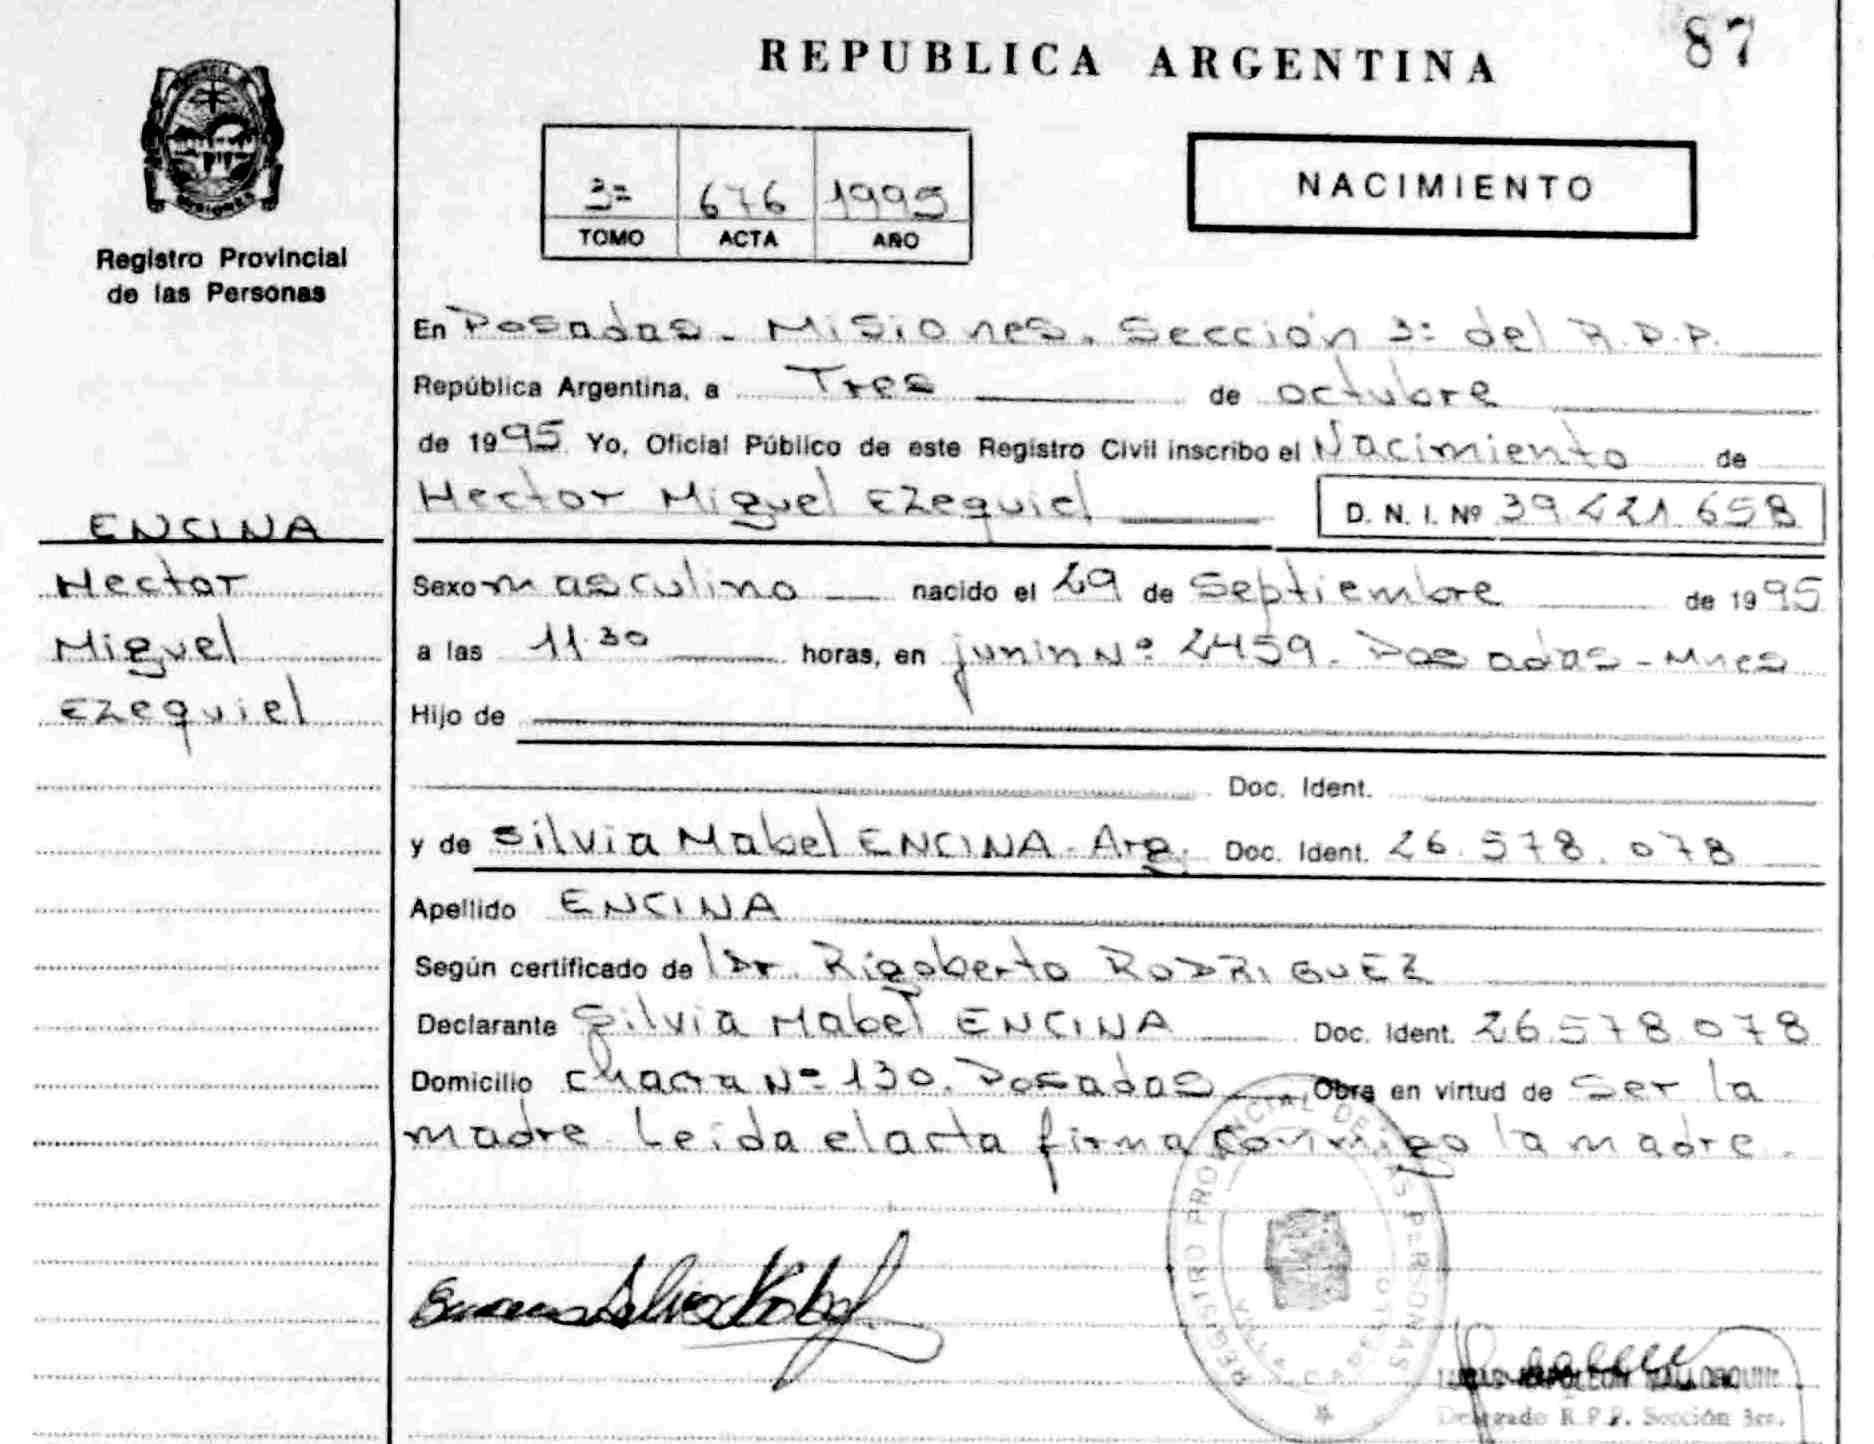 87
REPUBLICA ARGENTINA
PROVINCIA DE MISIONES
Registro Provincial
de las Personas
3= 676 1995
TOMO ACTA AÑO
NACIMIENTO
En Posadas - Misiones. Sección 3= del R.P.P.
República Argentina, a Tres de octubre
de 1995 Yo, Oficial Público de este Registro Civil inscribo el Nacimiento de
Hector Miguel Ezequiel D. N. I. Nº 39.221.658
ENCINA
Hector
Miguel
Ezequiel
Sexo masculino nacido el 29 de Septiembre de 1995
a las 11.30 horas, en junin Nº 2459. Posadas - Mnes
Hijo de
Doc. Ident.
y de Silvia Mabel ENCINA - Arg. Doc. Ident. 26.578.078
Apellido ENCINA
Según certificado de Dr. Rigoberto RODRIGUEZ
Declarante Silvia Mabel ENCINA Doc. Ident. 26.578.078
Domicilio chacra Nº 130. Posadas Obra en virtud de ser la
madre. Leida el acta firma conmigo la madre.
REGISTRO PROVINCIAL DE LAS PERSONAS
Silvia Mabel
Delegado R.P.P. Sección 3ra.